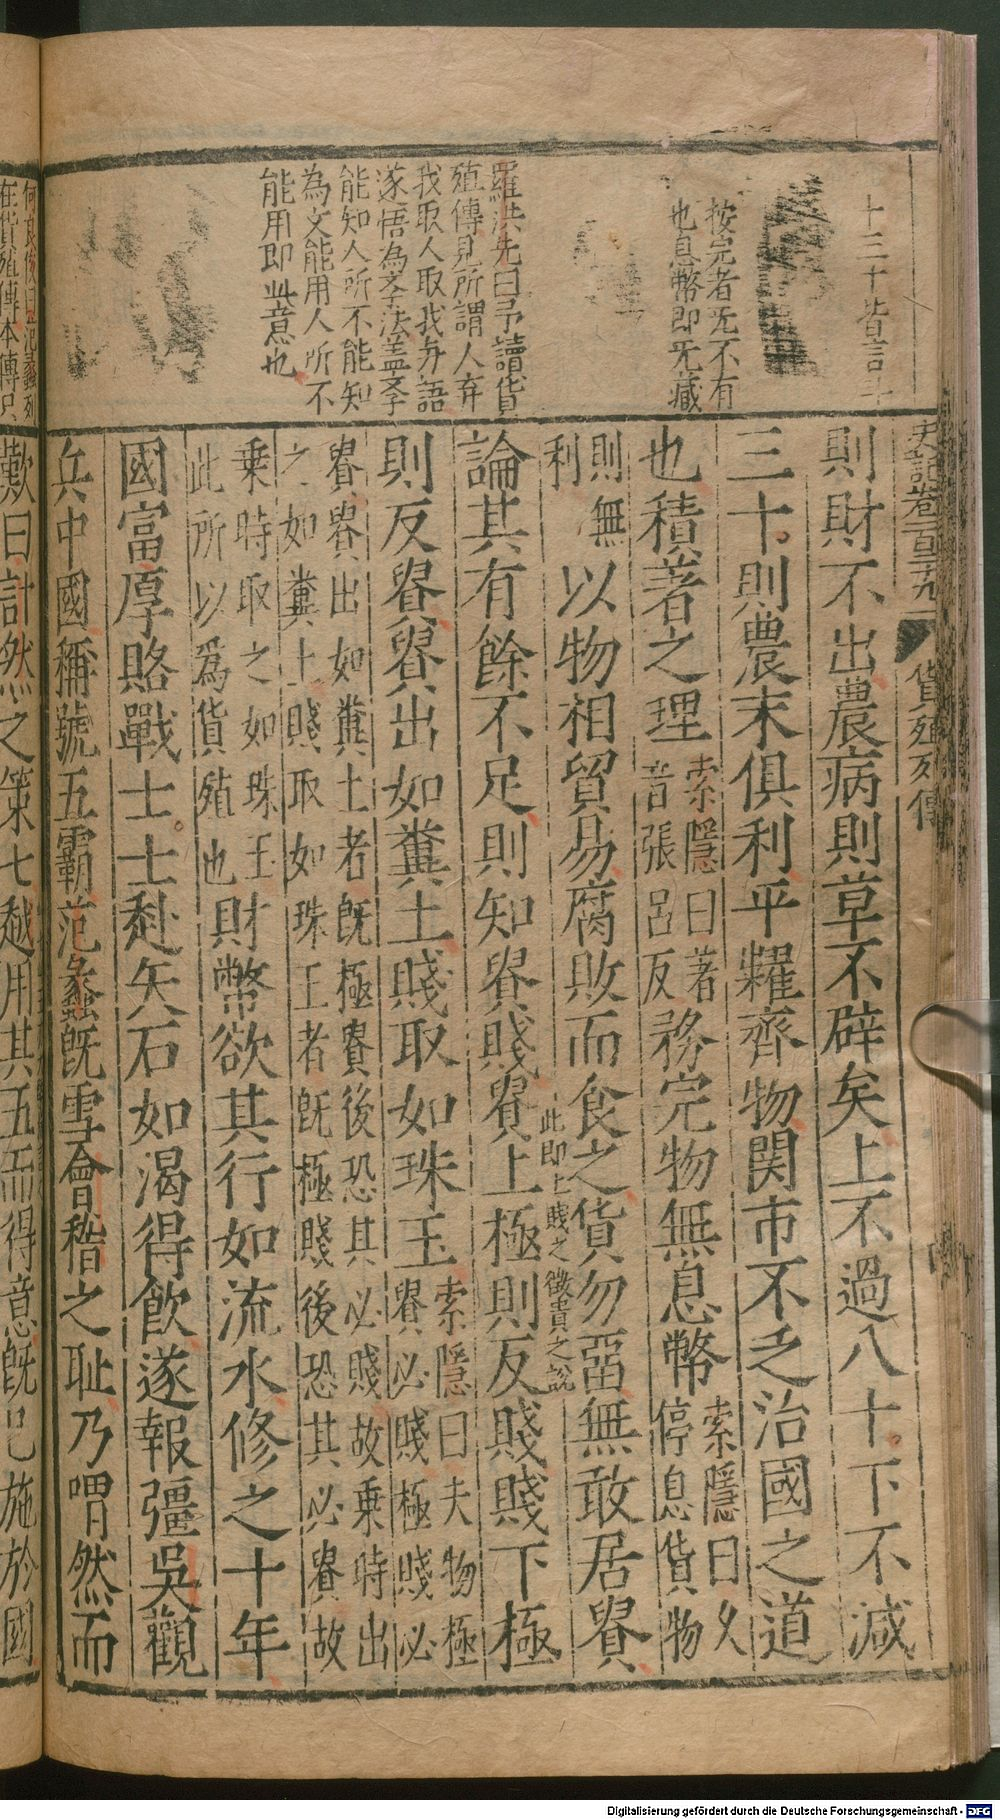 史記卷一百二十九 貨殖列傳
按完者无不有
也息幣即旡藏
羅洪先曰予讀貨
殖傳見所謂人弃
我取人取我与語
遂悟為文法盖文
能知人所不能知
為文能用人所不
能用即此意也
則財不出農病則草不辟矣上不過八十下不減
三十則農末俱利平糶齊物関市不乏治國之道
也積著之理索隱曰著音張呂反務完物無息幣索隱曰久停息貨物
則無利以物相貿易腐敗而食之貨勿畱無敢居貴
此即上賤之徵貴之說
論其有餘不足則知貴賤貴上極則反賤賤下極
則反貴貴出如糞土賤取如珠玉索隱曰夫物極貴必賤極賤必
貴貴出如糞土者既極貴後恐其必賤故乗時出
之如糞土賤取如珠玉者既極賤後恐其必貴故
乗時取之如珠玉此所以爲貨殖也財幣欲其行如流水修之十年
國富厚賂戰士士赴矢石如渴得飲遂報彊吳觀
兵中國稱號五霸范蠡既雪會稽之耻乃喟然而
在貨殖傳本傳只
歎曰計然之策七越用其五而得意既已施於國
Digitalisierung gefördert durch die Deutsche Forschungsgemeinschaft - DFG